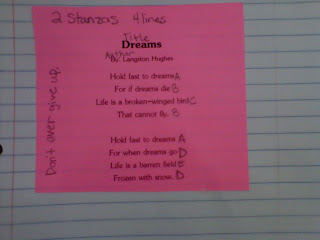 2 Stanzas 4 lines
Title
Dreams
Author
By: Langston Hughes
Hold fast to dreams A
For if dreams die B
Life is a broken-winged bird C
That cannot fly. B
Hold fast to dreams A
For when dreams go D
Life is a barren field E
Frozen with snow. D
Don't ever give up.